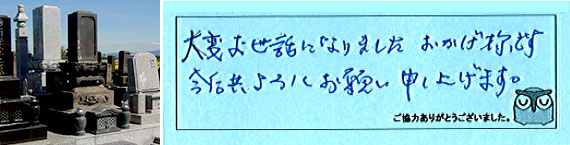 大変お世話になりました おかげ様です
今后共ようしくお願い申し上げます。
ご協力ありがとうございました。